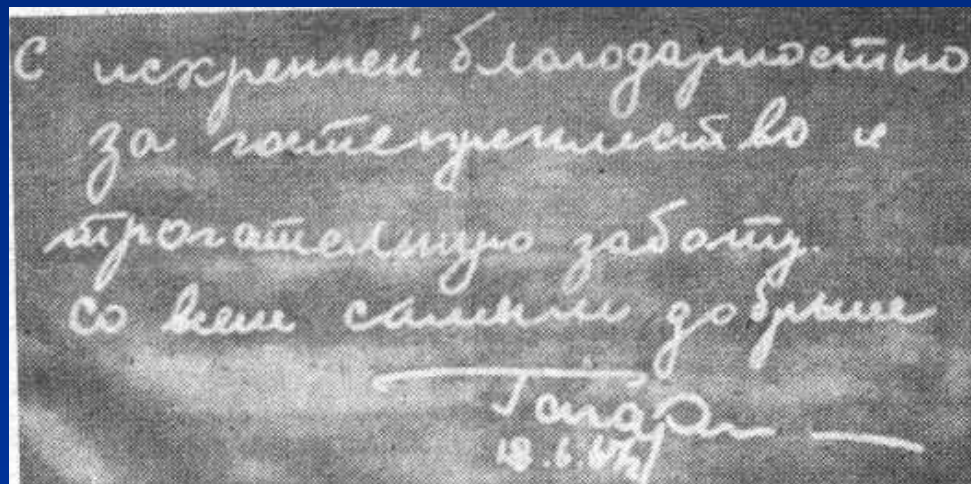 С искренней благодарностью
за гостеприимство и
трогательную заботу.
со всем самым добрым
Гагарин